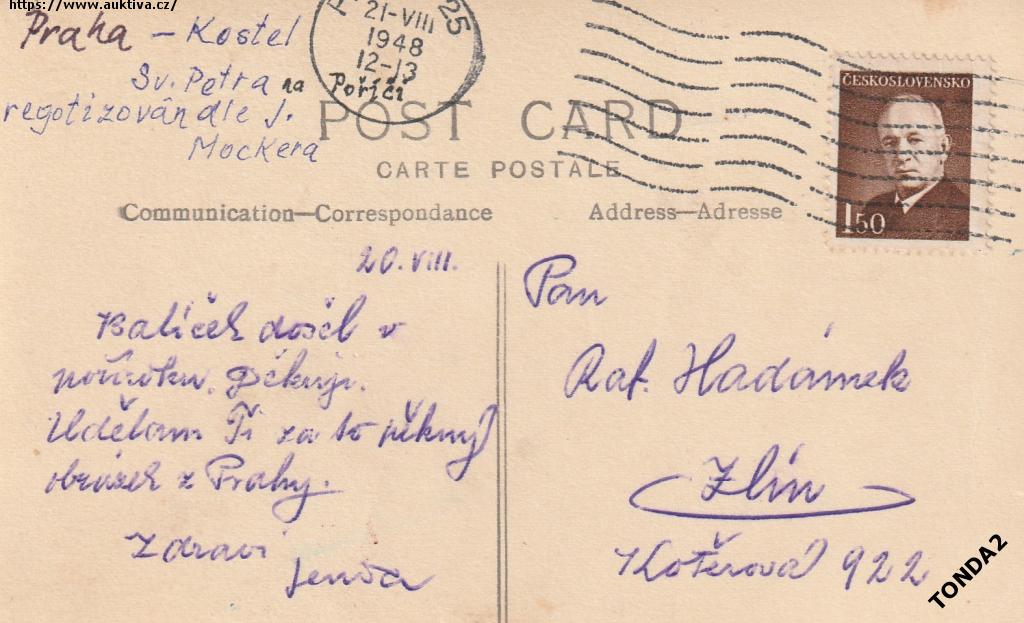 https://www.auktiva.cz/
Praha – Kostel
Sv. Petra na Poříčí
regotizován dle J.
Mockera
25
21-VIII
1948
12-13
POST CARD
CARTE POSTALE
Communication—Correspondance
Address—Adresse
ČESKOSLOVENSKO
1 50
20. VIII.
Balíček došel v
pořádku. Děkuji.
Udělám Ti za to pěkný
obrázek z Prahy.
Zdraví
Jenda
Pan
Raf. Hadámek
Zlín
Kotěrova 922
TONDA2